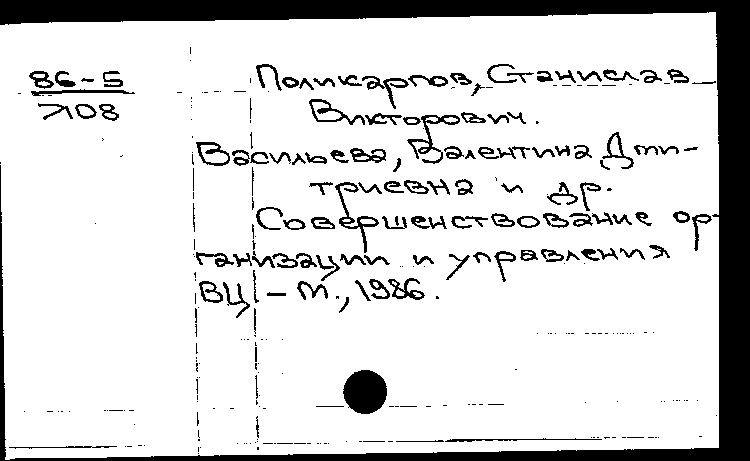 86-5
7108
Поликарпов, Станислав
Викторович.
Васильева, Валентина Дми-
триевна и др.
Совершенствование ор-
ганизации и управления
ВЦ. - М., 1986.